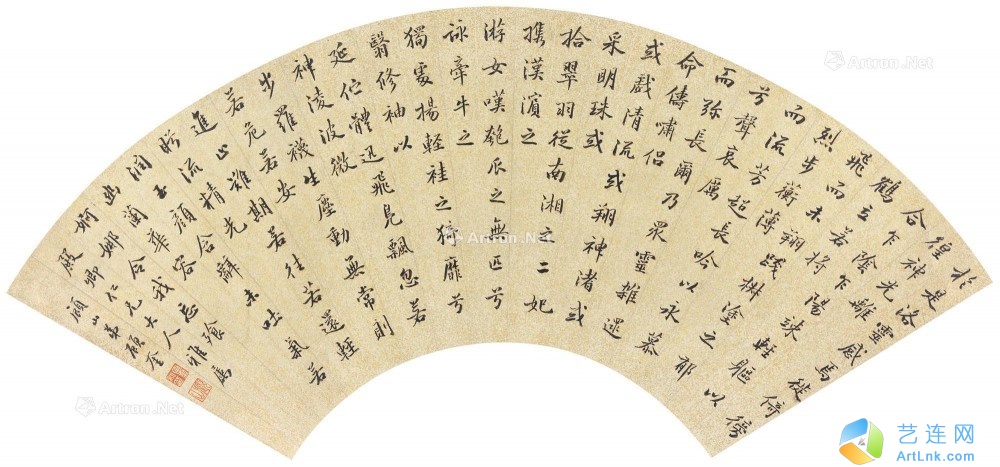 於是洛靈感焉徙倚傍
徨神光離
合乍陰乍陽竦輕軀以
鶴立若將
飛而未翔踐椒塗之郁
烈步蘅薄
而流芳超長吟以永慕
兮聲哀厲
而弥長爾乃眾靈雜遝
命儔嘯侶
或戲清流或翔神渚或
采明珠或
拾翠羽從南湘之二妃
携漢濱之
游女嘆匏瓜之無匹兮
詠牽牛之
獨處揚輕袿之猗靡兮
翳修袖以
延佇體迅飛鳧飄忽若
神淩波微
步羅襪生塵動無常則
若危若安
進止難期若往若還轉
眄流精光
潤玉顏含辭未吐氣若
幽蘭華容
婀娜令我忘飱
殿卿仁兄大人雅屬
顧奎
Artron.Net
Artron.Net
Artron.Net
Artron.Net
Artron.Net
艺连网
ArtLnk.com